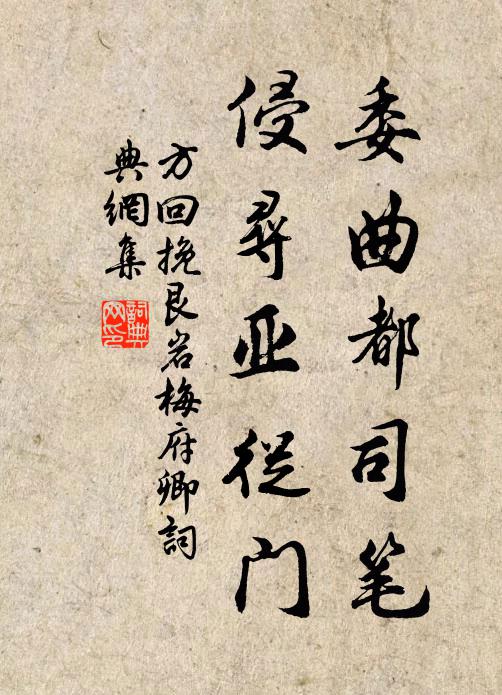 委曲都司笔
侵寻亚從门
方回挽艮岩梅府卿詞
典網集
詞典网印